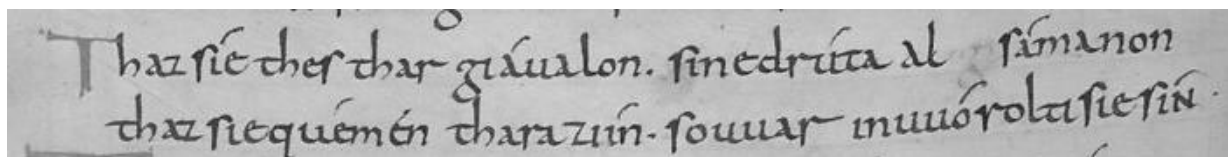 Thaz síe thes thar giáualon. sine drúta al sámanon
thaz sie quémén thara zi ín. so uuar in uuórolti sie sín